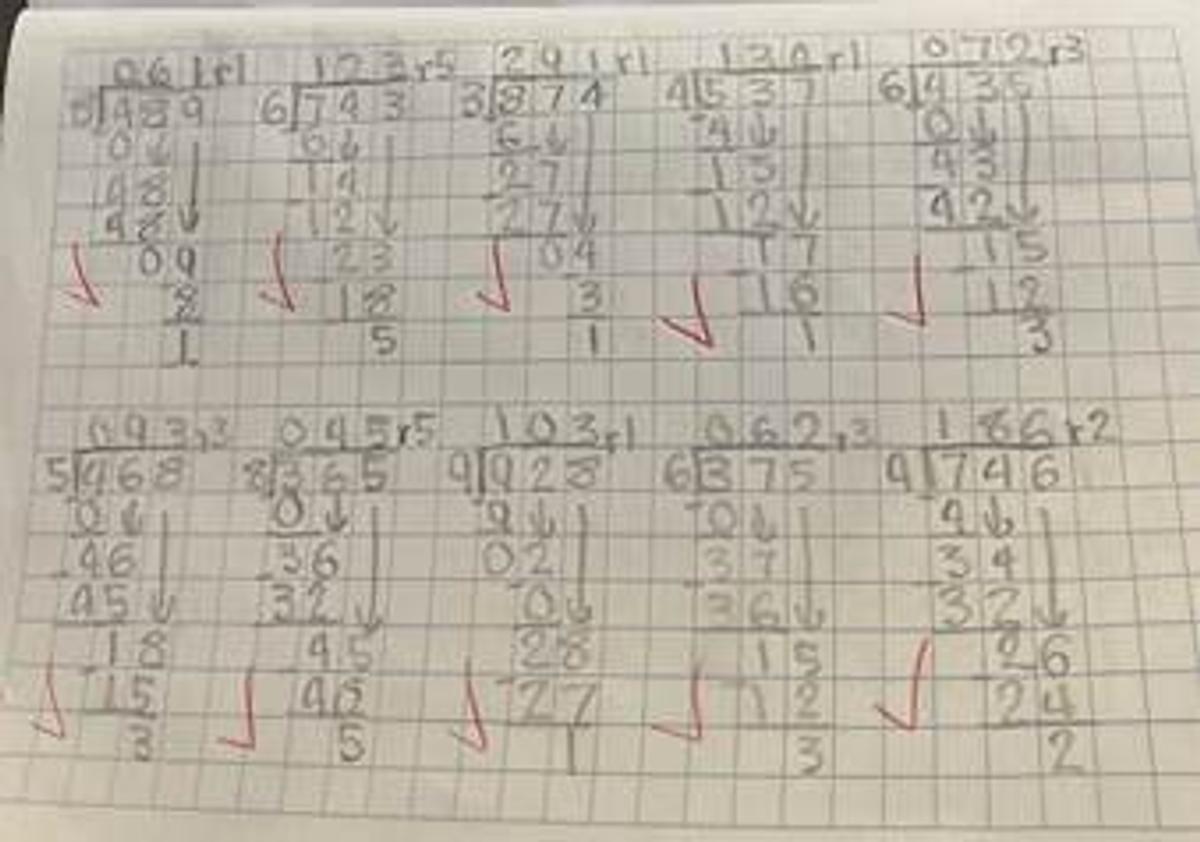 061r1 123r5 291r1 134r1 072r3
8)489 6)743 3)874 4)537 6)435
0 6 6 -4 0
48 14 27 13 43
48 -12 -27 -12 42
09 23 04 17 15
8 18 3 -16 -12
1 5 1 1 3
093r3 045r5 103r1 062r3 186r2
5)468 8)365 9)928 6)375 4)746
0 0 9 0 4
46 36 02 37 34
-45 -32 -0 -36 -32
18 45 28 15 26
-15 -40 -27 -12 -24
3 5 1 3 2